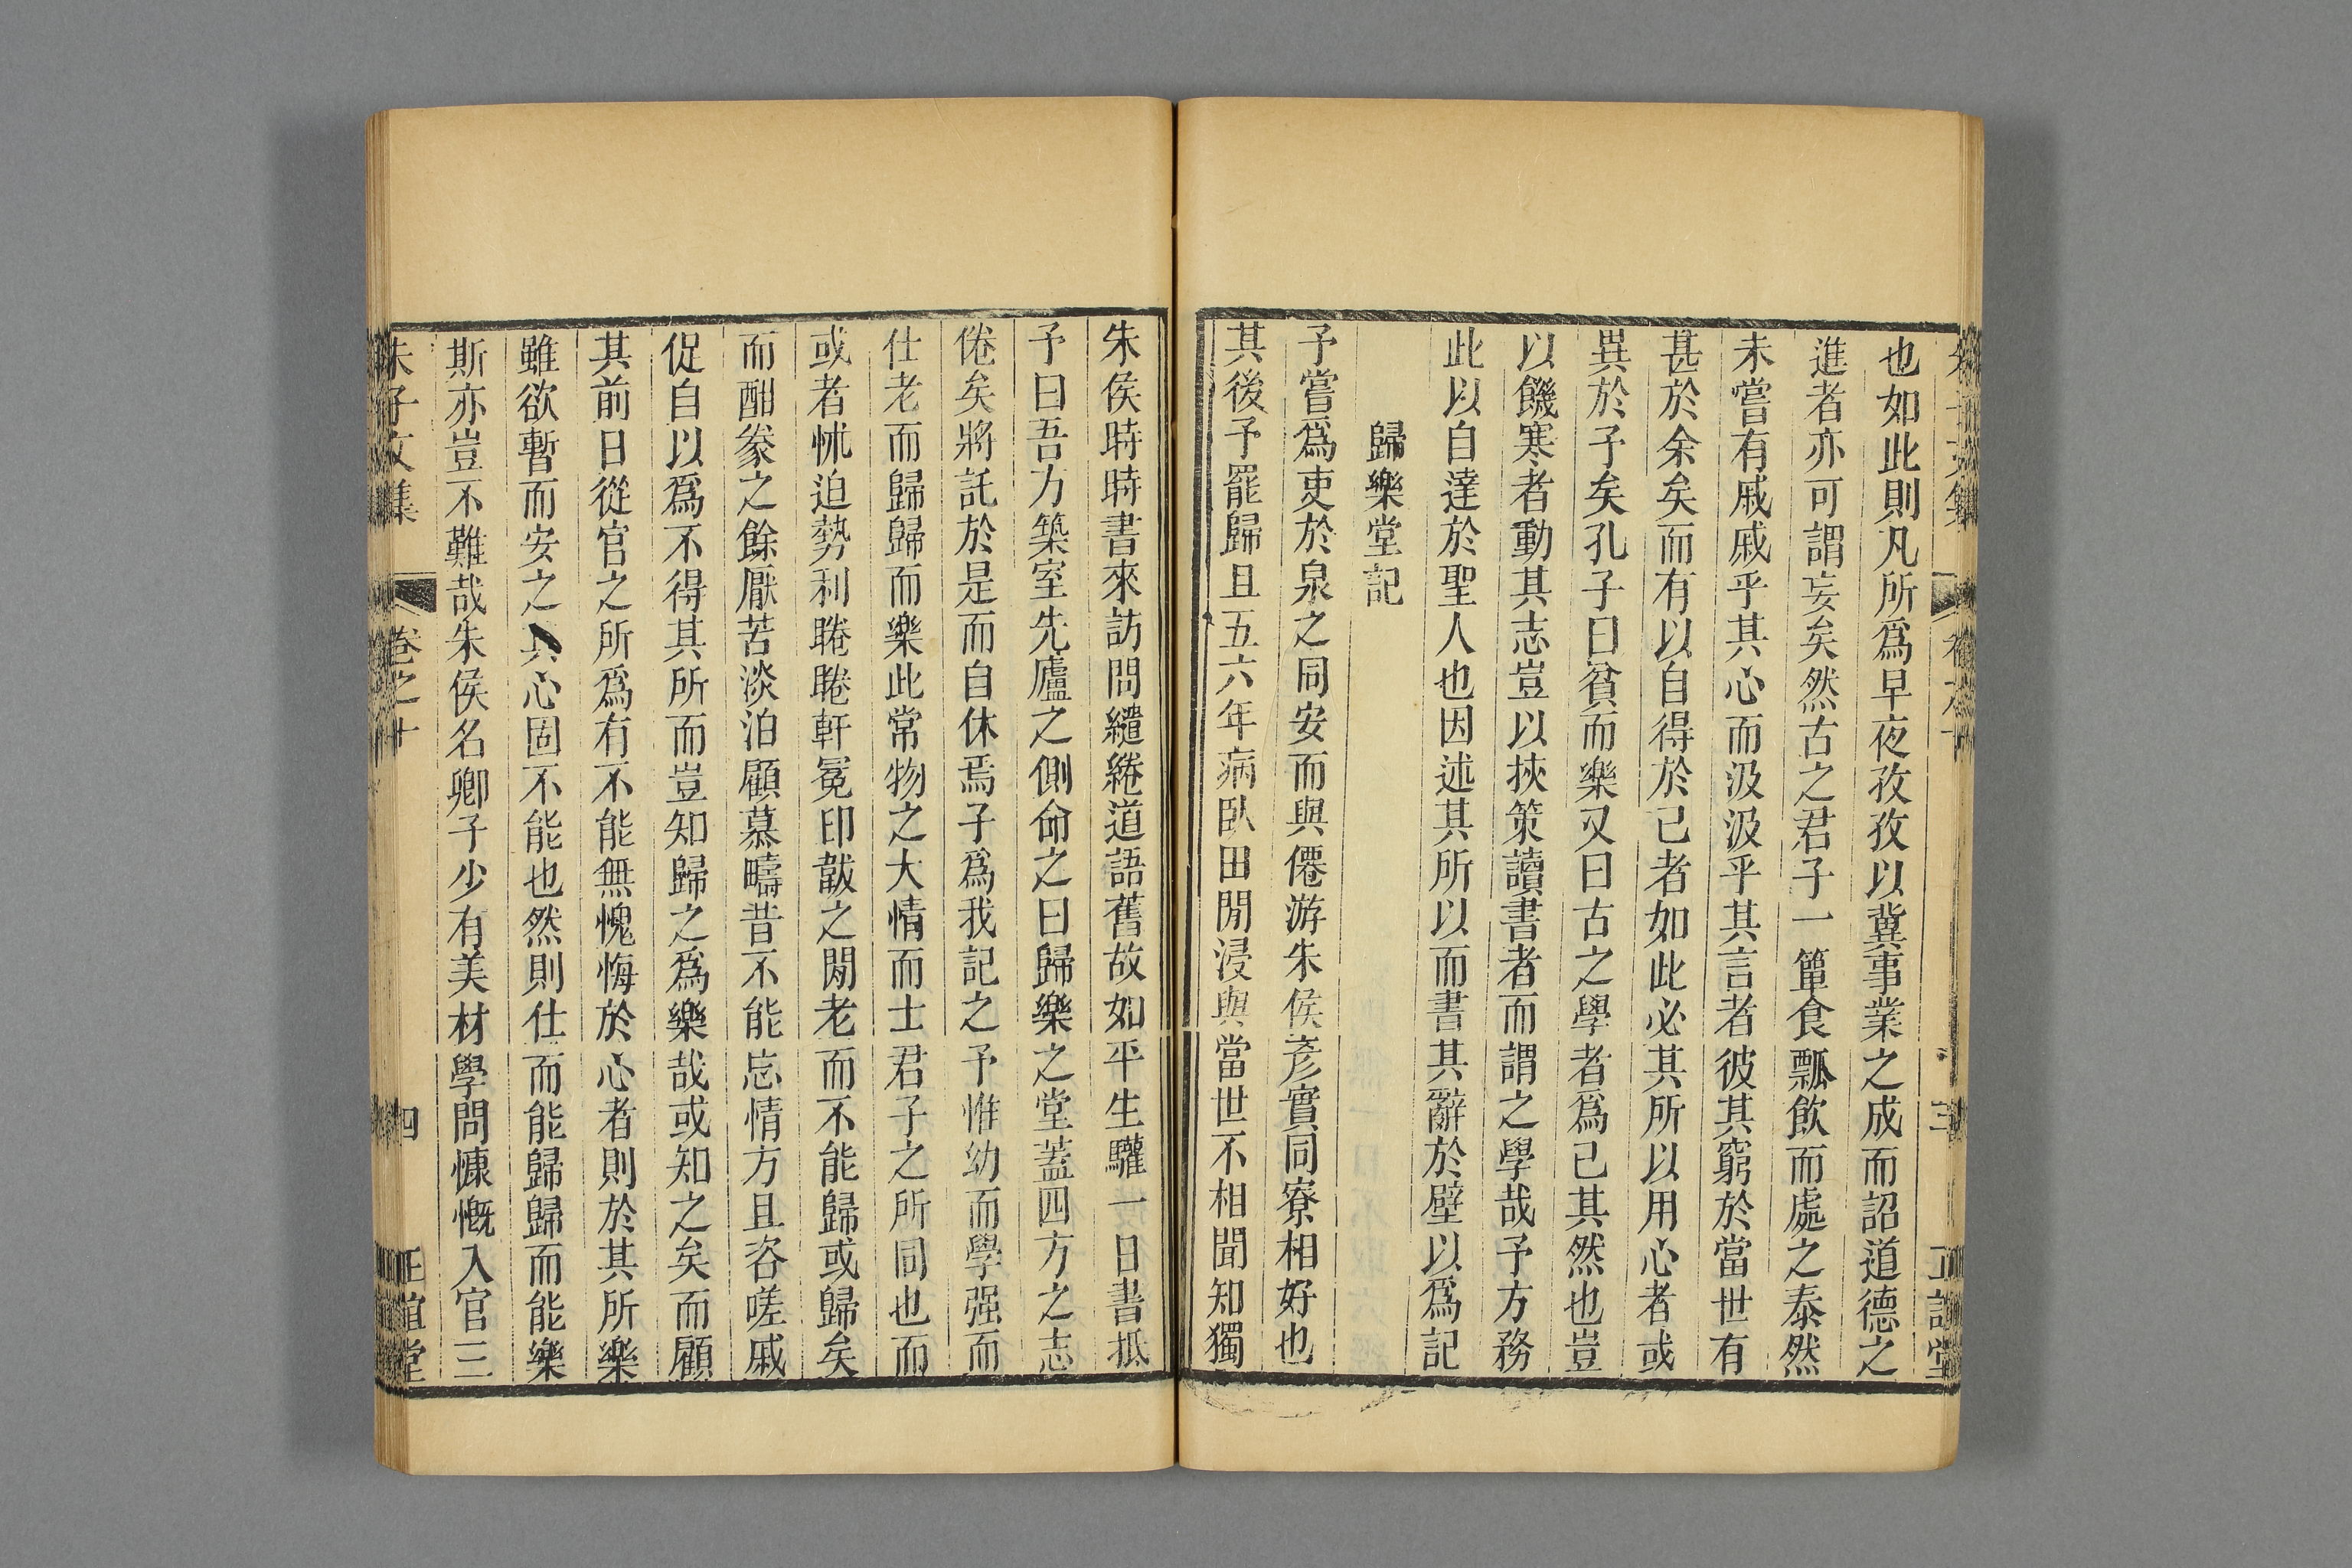 也如此則凡所爲早夜孜孜以冀事業之成而詔道德之
進者亦可謂妄矣然古之君子一簞食瓢飲而處之泰然
未嘗有戚戚乎其心而汲汲乎其言者彼其窮於當世有
甚於余矣而有以自得於己者如此必其所以用心者或
異於予矣孔子曰貧而樂又曰古之學者爲己其然也豈
以饑寒者動其志豈以挾策讀書者而謂之學哉予方務
此以自達於聖人也因述其所以而書其辭於壁以爲記
歸樂堂記
予嘗爲吏於泉之同安而與僊游朱侯彥實同寮相好也
其後予罷歸且五六年病臥田閒浸與當世不相聞知獨
朱侯時時書來訪問繾綣道語舊故如平生驩一日書抵
予曰吾方築室先廬之側命之曰歸樂之堂蓋四方之志
倦矣將託於是而自休焉子爲我記之予惟幼而學强而
仕老而歸歸而樂此常物之大情而士君子之所同也而
或者怵迫勢利睠睠軒冕印韍之閒老而不能歸或歸矣
而酣豢之餘厭苦淡泊顧慕疇昔不能忘情方且咨嗟戚
促自以爲不得其所而豈知歸之爲樂哉或知之矣而顧
其前日從官之所爲有不能無愧悔於心者則於其所樂
雖欲暫而安之其心固不能也然則仕而能歸歸而能樂
斯亦豈不難哉朱侯名卿子少有美材學問慷慨入官三
朱子文集 卷之十 四 正誼堂